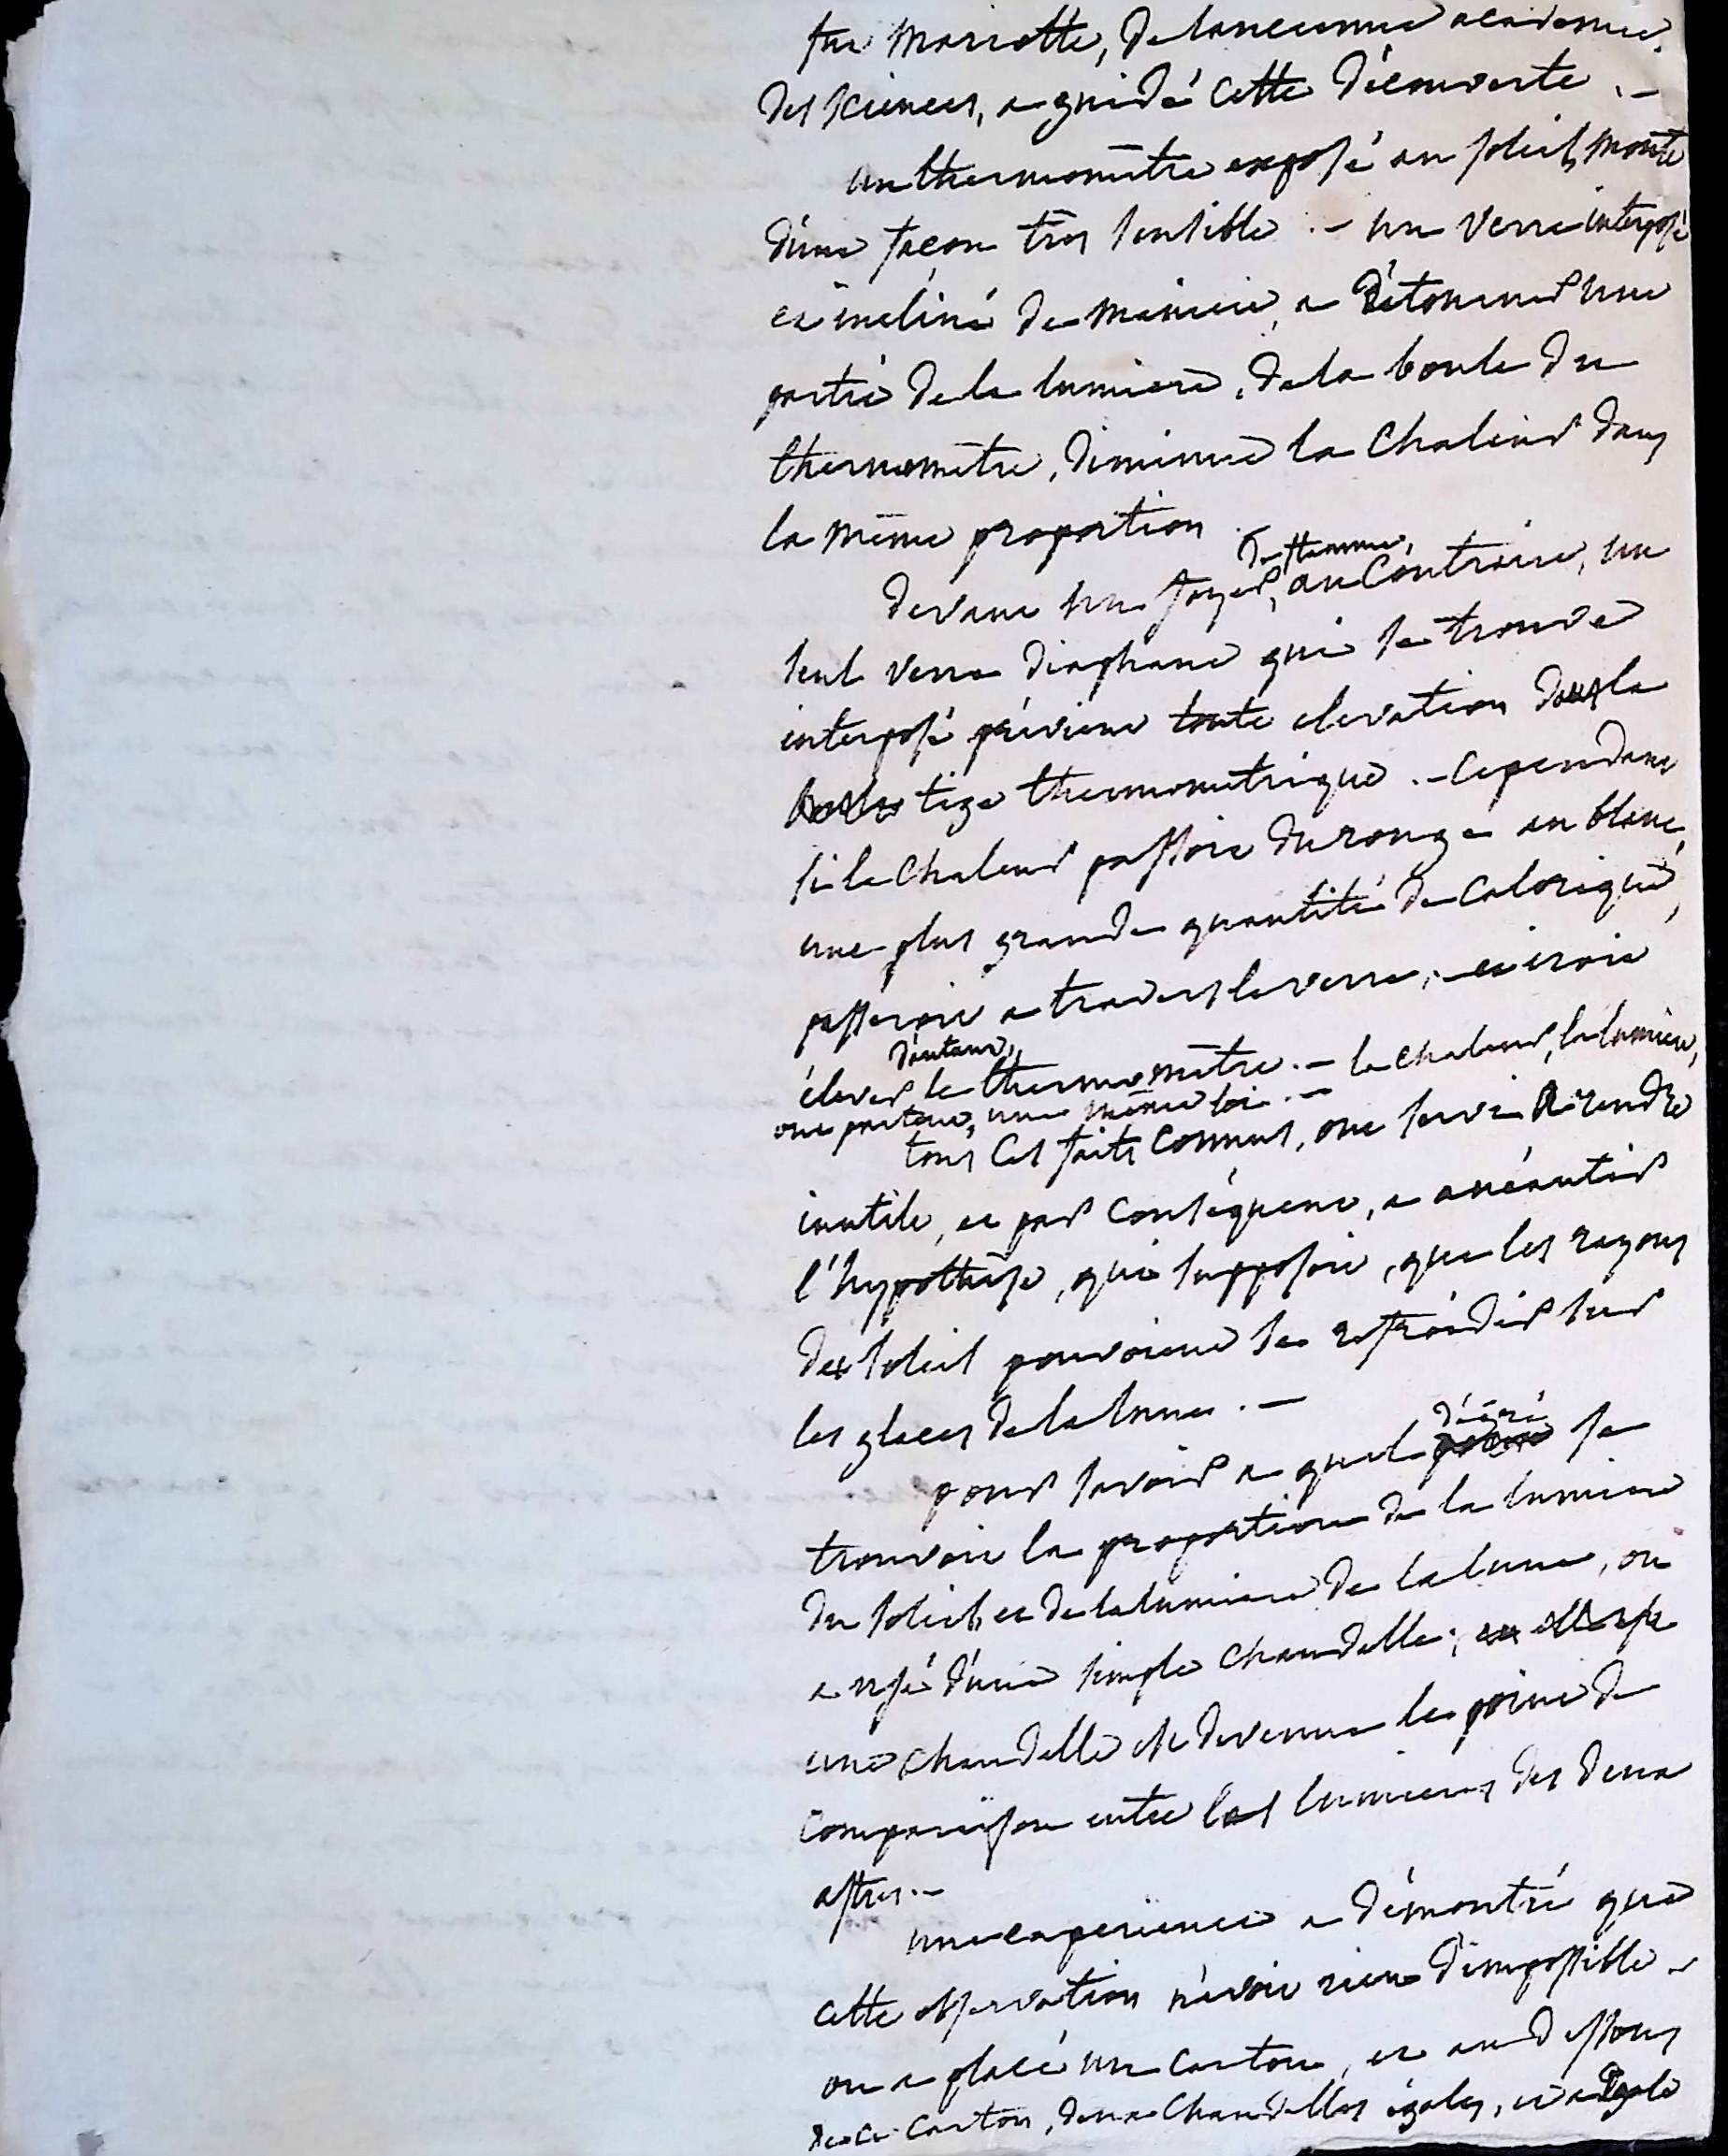 feu Mariotte, de lancienne academie
des sciences, a guidé cette découverte .–
un thermomêtre exposé au soleil, monte
d'une façon très sensible .– un verre interposé
et incliné de maniere, a détourner une
partie de la lumiere, de la boule du
thermomêtre, diminue la chaleur dans
la même proportion .
de flamme,
devant un foyer, au contraire, un
seul verre diaphane qui se trouve
interposé prévient toute elevation dans la
tige thermometrique .– cependant
si la chaleur passoit du rouge au blanc,
une plus grande quantité de calorique,
passeroit a travers le verre, et iroit
d'autant,
élever le thermomêtre .– la chaleur, la lumiere,
ont partout, une même loi .–
tous ces faits connus, ont servi a rendre
inutile, et par conséquent, a anéantir
l'hypothèse, qui supposoit, que les rayons
de soleil pouvoient se refroidir sur
les glaces de la lune .–
dégré
pour savoir a quel point se
trouvoit la proportion de la lumiere
du soleil, et de la lumiere de la lune, on
a usé d'une simple chandelle ; et elle est
une chandelle est devenue le point de
comparaison entre les lumieres des deux
astres .–
une experience a démontré que
cette observation n'avoit rien d'impossible –
on a placé un carton, et au dessous
de ce carton, deux chandelles égales, et a égale